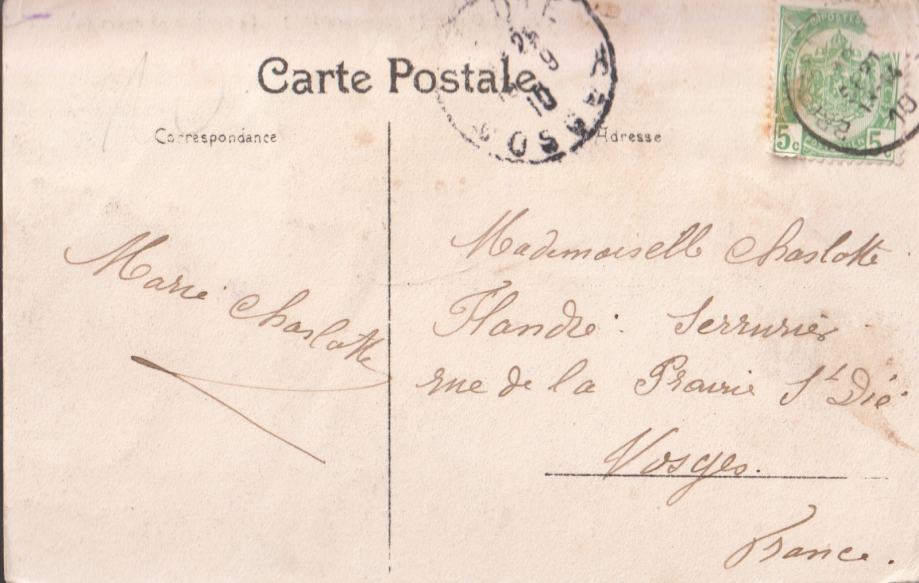 Carte Postale
Correspondance
Adresse
VOSGES
25
9
10
5c
5c
Marie Charlotte
Mademoiselle Charlotte
Flandre Serrurier
rue de la Prairie St Dié
Vosges.
France.